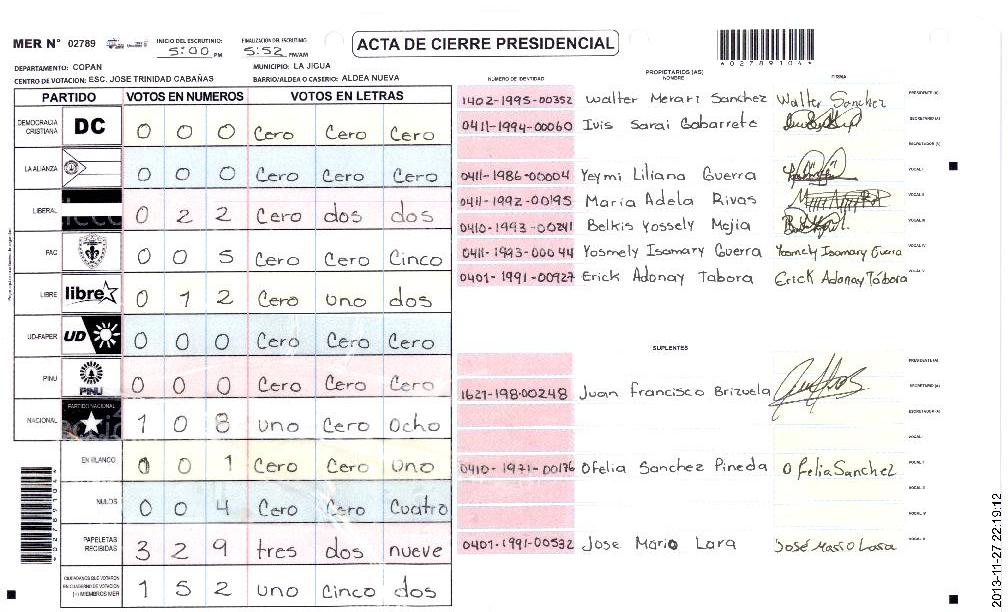 MER N° 02789
INICIO DEL ESCRUTINIO: 5:00 PM
FINALIZACIÓN DEL ESCRUTINIO 5:52 PM/AM
ACTA DE CIERRE PRESIDENCIAL
4027891044
DEPARTAMENTO: COPAN
MUNICIPIO: LA JIGUA
CENTRO DE VOTACION: ESC. JOSE TRINIDAD CABAÑAS
BARRIO/ALDEA O CASERIO: ALDEA NUEVA
PARTIDO VOTOS EN NUMEROS VOTOS EN LETRAS
DEMOCRACIA CRISTIANA DC 0 0 0 Cero Cero Cero
LA ALIANZA 0 0 0 Cero Cero Cero
LIBERAL 0 2 2 Cero dos dos
PAC 0 0 5 Cero Cero Cinco
LIBRE libre 0 1 2 Cero uno dos
UD-FAPER UD 0 0 0 Cero Cero Cero
PINU PINU 0 0 0 Cero Cero Cero
NACIONAL PARTIDO NACIONAL 1 0 8 uno Cero Ocho
EN BLANCO 0 0 1 Cero Cero Uno
NULOS 0 0 4 Cero Cero Cuatro
PAPELETAS RECIBIDAS 3 2 9 tres dos nueve
CIUDADANOS QUE VOTARON EN CUADERNO DE VOTACION (+) MIEMBROS MER 1 5 2 uno Cinco dos
4027891044
NUMERO DE IDENTIDAD PROPIETARIOS (AS) NOMBRE FIRMA
1402-1995-00352 Walter Merari Sanchez Walter Sanchez PRESIDENTE (A)
0411-1994-00060 Ivis Sarai Gabarrete SECRETARIO (A)
ESCRUTADOR (A)
0411-1986-00004 Yeymi Liliana Guerra VOCAL I
0411-1992-00195 Maria Adela Rivas VOCAL II
0410-1993-00241 Belkis Yossely Mejia VOCAL III
0411-1993-00044 Yosmely Isamary Guerra Yosmely Isamary Guerra VOCAL IV
0401-1991-00927 Erick Adonay Tabora Erick Adonay Tábora VOCAL V
SUPLENTES
PRESIDENTE (A)
1627-198-00248 Juan Francisco Brizuela SECRETARIO (A)
ESCRUTADOR (A)
VOCAL I
0410-1971-00176 Ofelia Sanchez Pineda Ofelia Sanchez VOCAL II
VOCAL III
VOCAL IV
0401-1991-00532 Jose Mario Lara José Mario Lara VOCAL V
2013-11-27 22:19:12